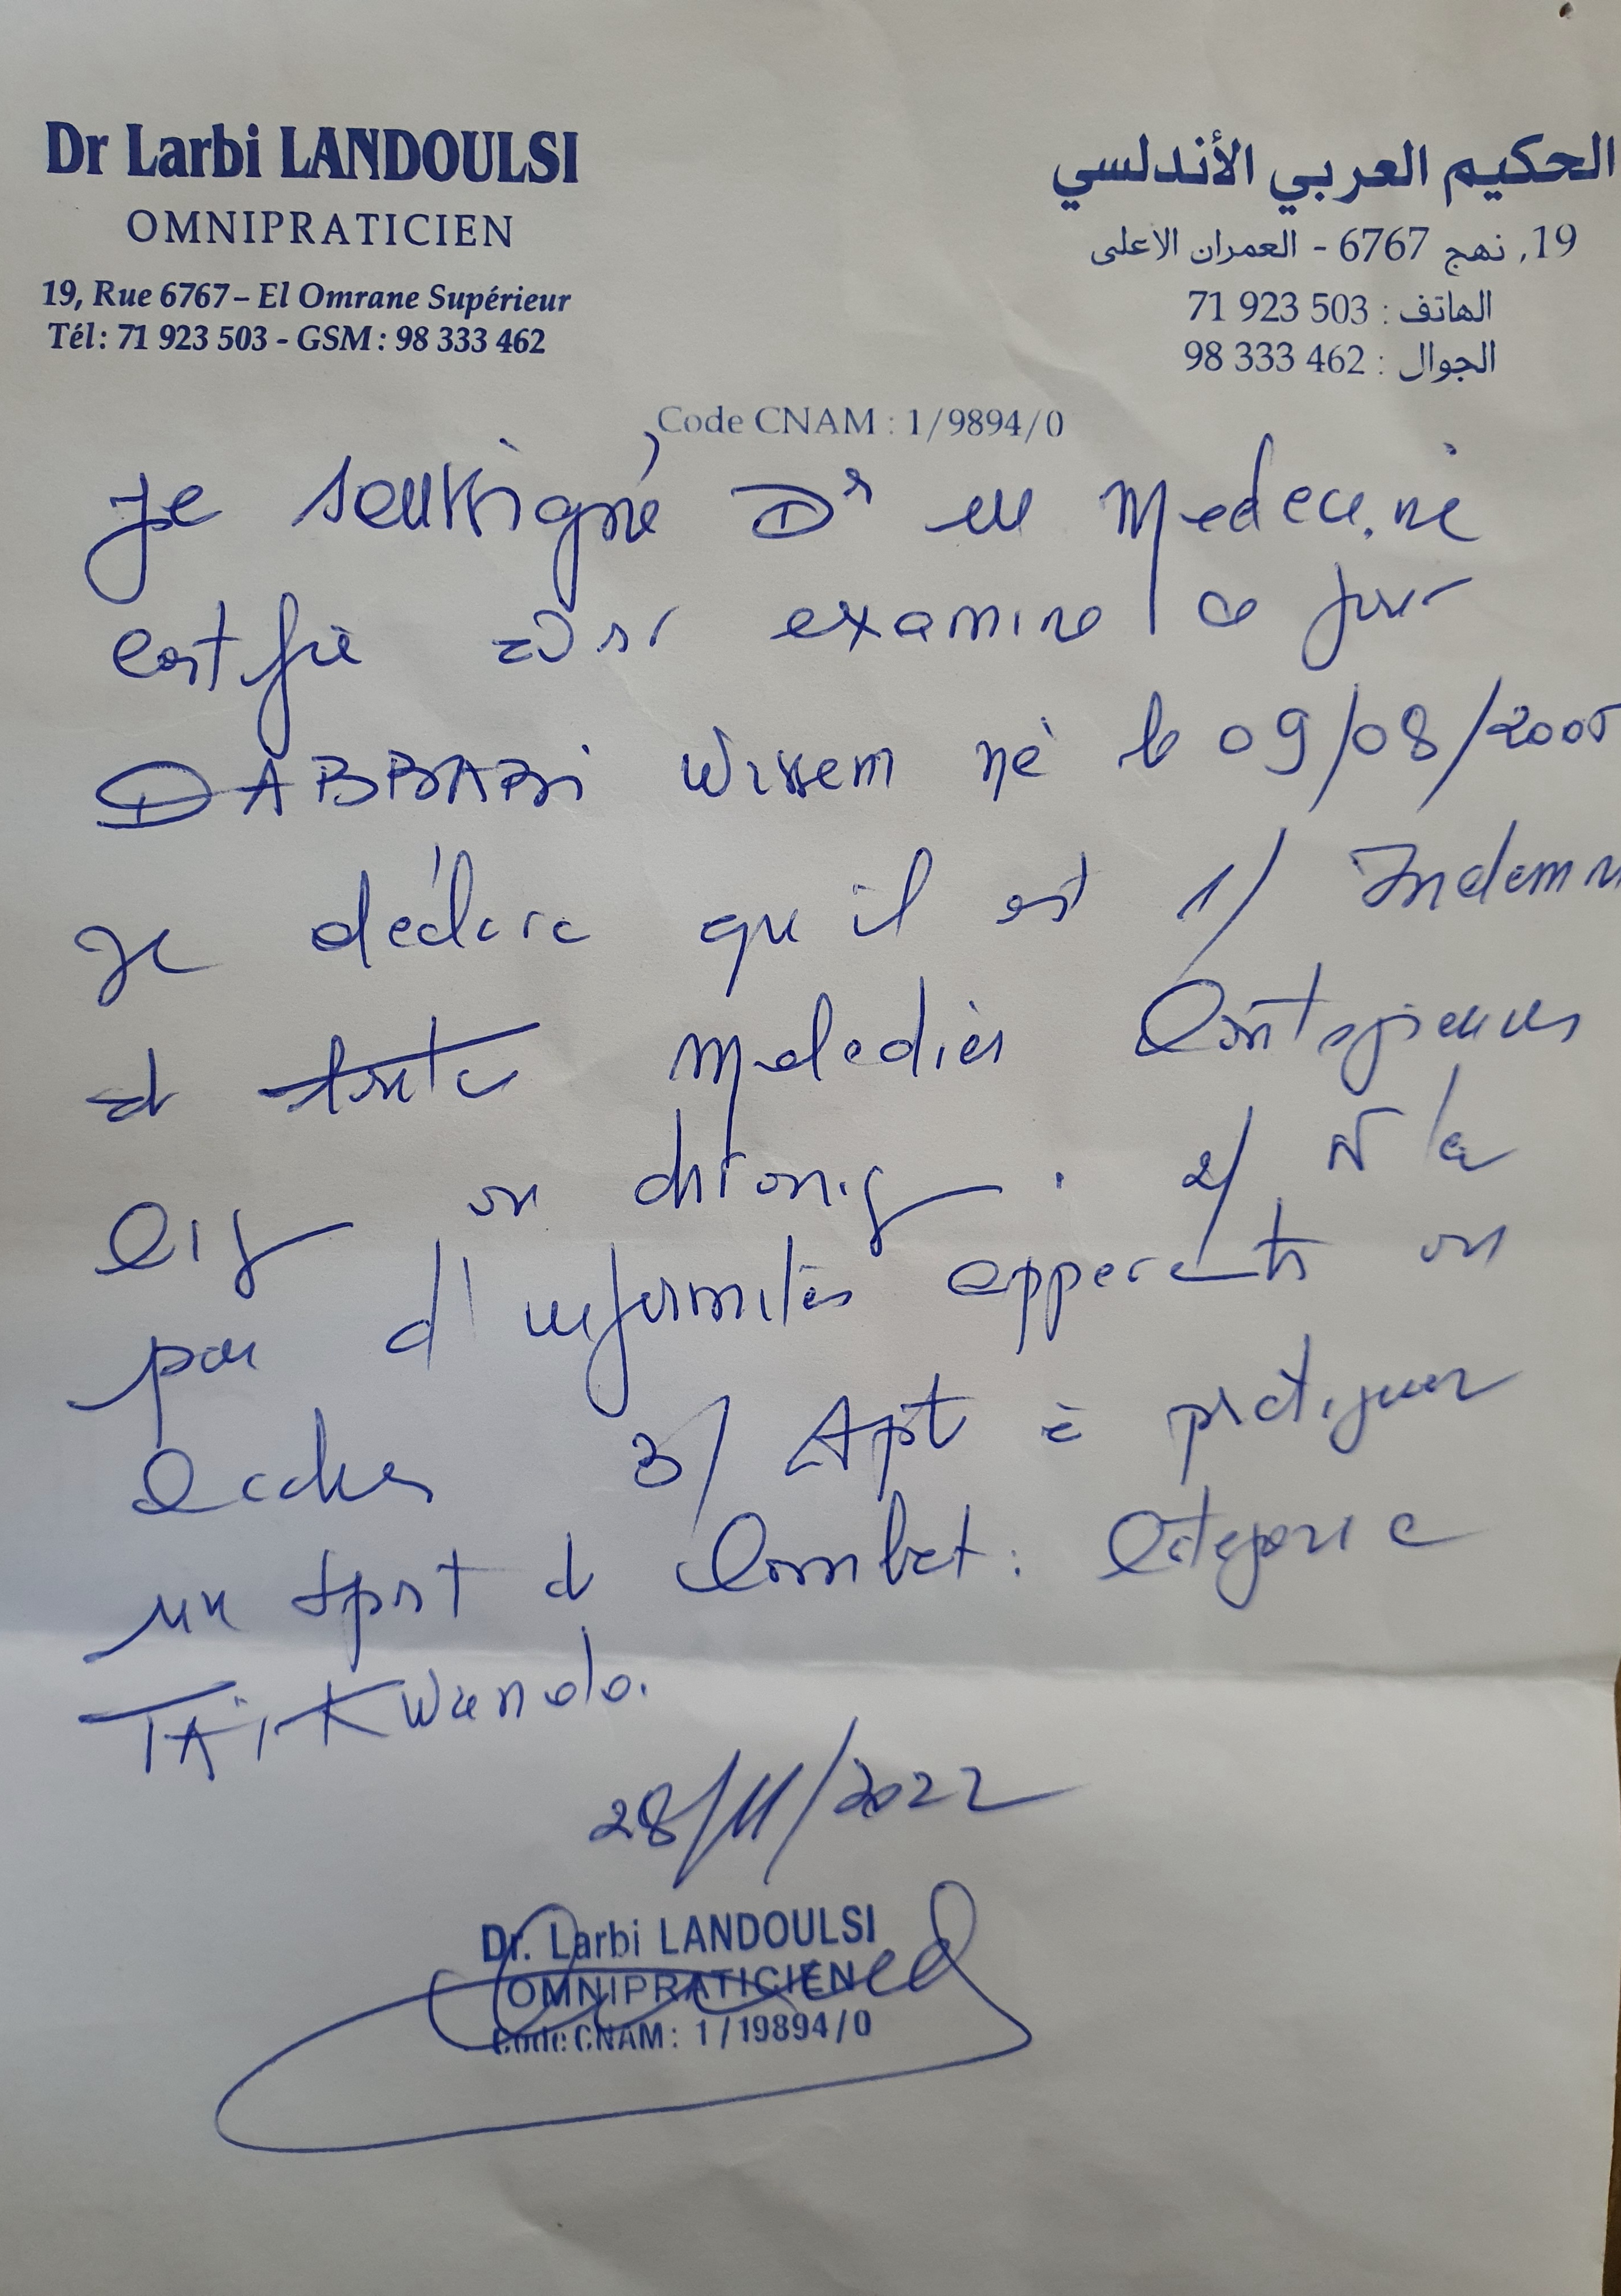 Dr Larbi LANDOULSI
OMNIPRATICIEN
19, Rue 6767 – El Omrane Supérieur
Tél : 71 923 503 - GSM : 98 333 462
الحكيم العربي الأندلسي
19, نهج 6767 - العمران الأعلى
الهاتف : 71 923 503
الجوال : 98 333 462
Code CNAM : 1/9894/0
Je soussigné Dr en Medecine
certifie avoir examiné ce jour
DABBABI Wissem né le 09/08/2005
je déclare qu'il est 1/ Indemn
d toute maladies contagieuses
ou chroniq . 2/ N'a
pas d'infirmités apparents ou
cachés 3/ Apt à pratiquer
un sport d combat : Categorie
TAïKwando.
28/11/2022
Dr. Larbi LANDOULSI
OMNIPRATICIEN
Code CNAM : 1/19894/0